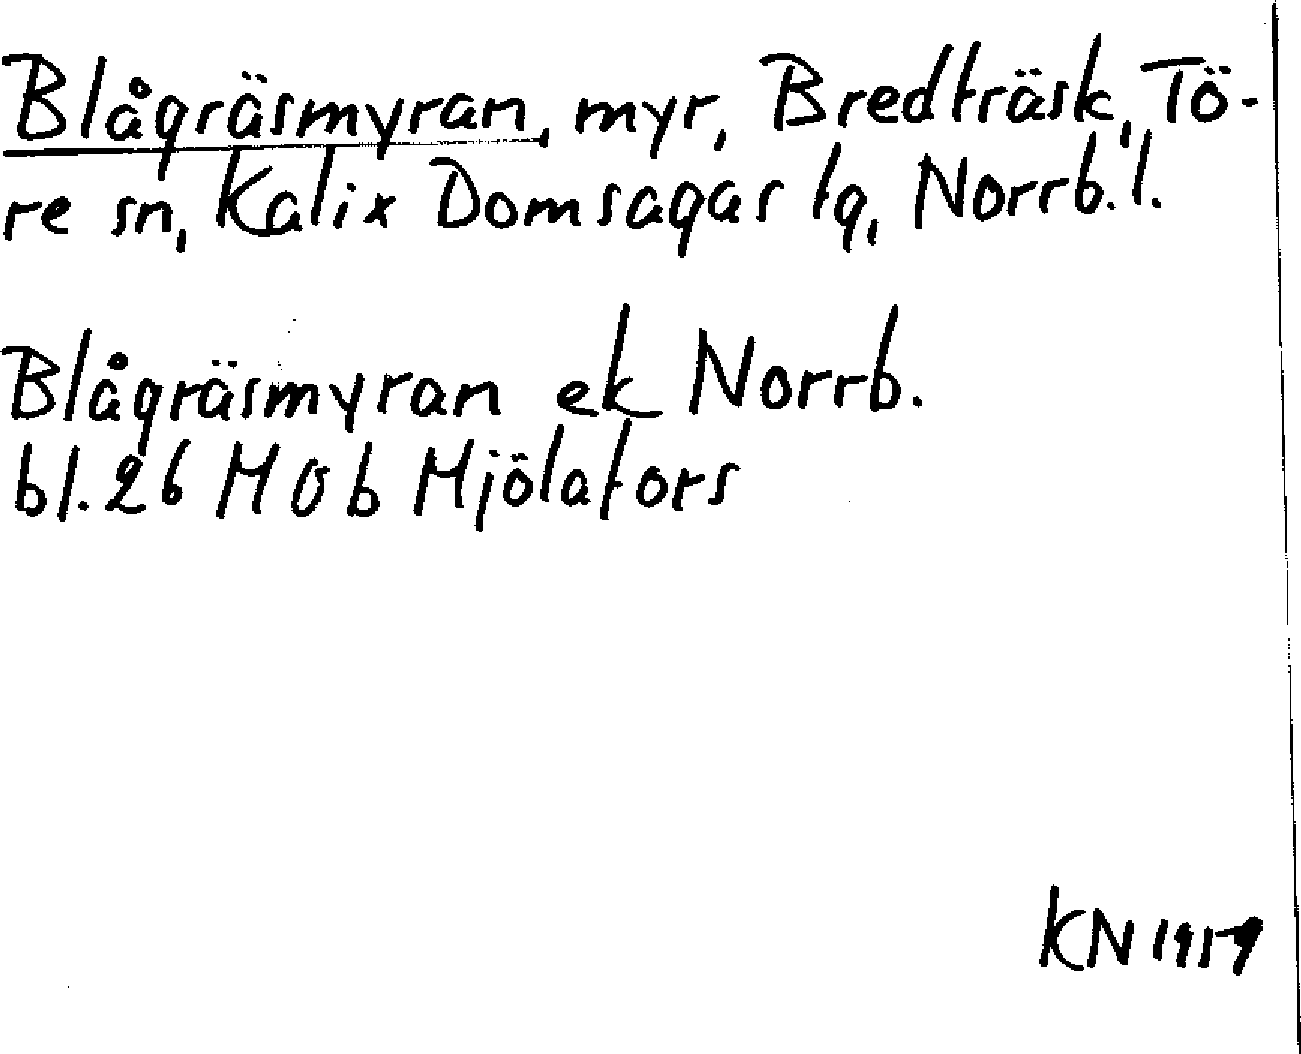 Blågräsmyran, myr, Bredträsk, Tö-
re sn, Kalix Domsagas tg, Norrb. l.
Blågräsmyran ek Norrb.
bl. 26 M Ö b Mjölafors
KN